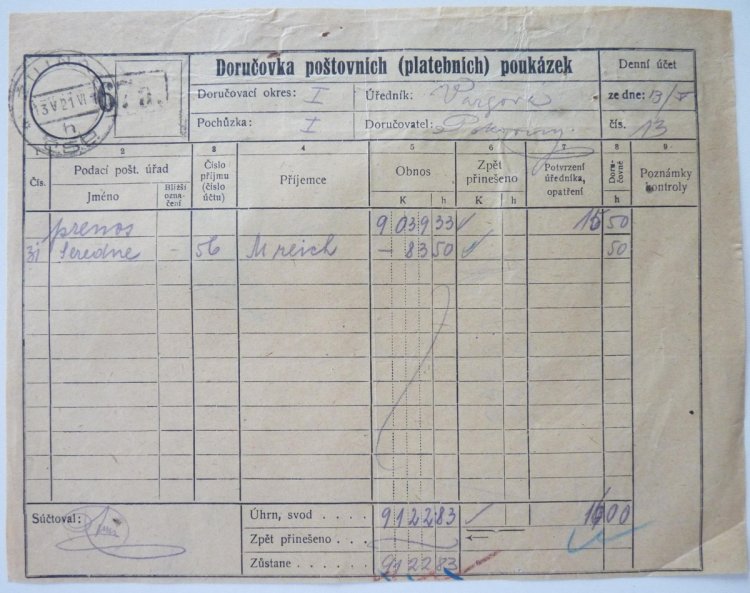 Doručovka poštovních (platebních) poukázek
Denní účet
Doručovací okres: I
Úředník: Vargova
ze dne: 13/V
Pochůzka: I
Doručovatel:
čís. 13
ČSR
1 2 3 4 5 6 7 8 9
Čís.
Podací pošt. úřad
Jméno
Bližší označení
Číslo příjmu (číslo účtu)
Příjemce
Obnos
K h
Zpět přinešeno
K h
Potvrzení úředníka, opatření
Doručovné
h
Poznámky kontroly
prenos 9039 33 15 50
31 Seredne – 56 M reich – 83 50 50
Súčtoval:
Úhrn, svod . . . . 9122 83 16 00
Zpět přinešeno . . .
Zůstane . . . . 9122 83